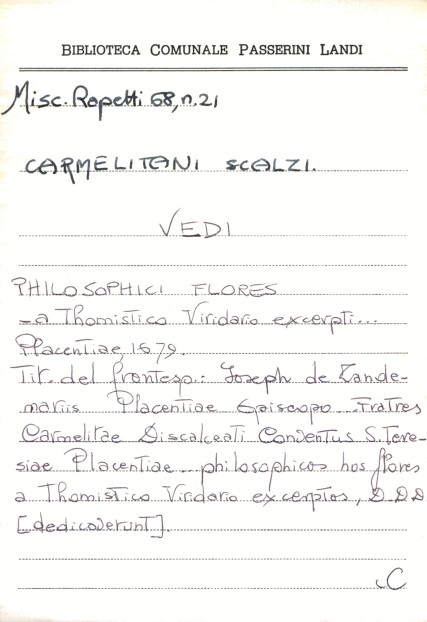 BIBLIOTECA COMUNALE PASSERINI LANDI
Misc. Rapetti 68, n.21
CARMELITANI SCALZI.
VEDI
PHILOSOPHICI FLORES
a Thomistico Viridario excerpti...
Placentiae, 1679.
Tit. del frontesp.: Joseph de Zande-
mariis Placentiae Episcopo Fratres
Carmelitae Discalceati Conventus S. Tere-
siae Placentiae... philosophicos hos flores
a Thomistico Viridario excerptos, D.D.D
[dedicaverunt].
C